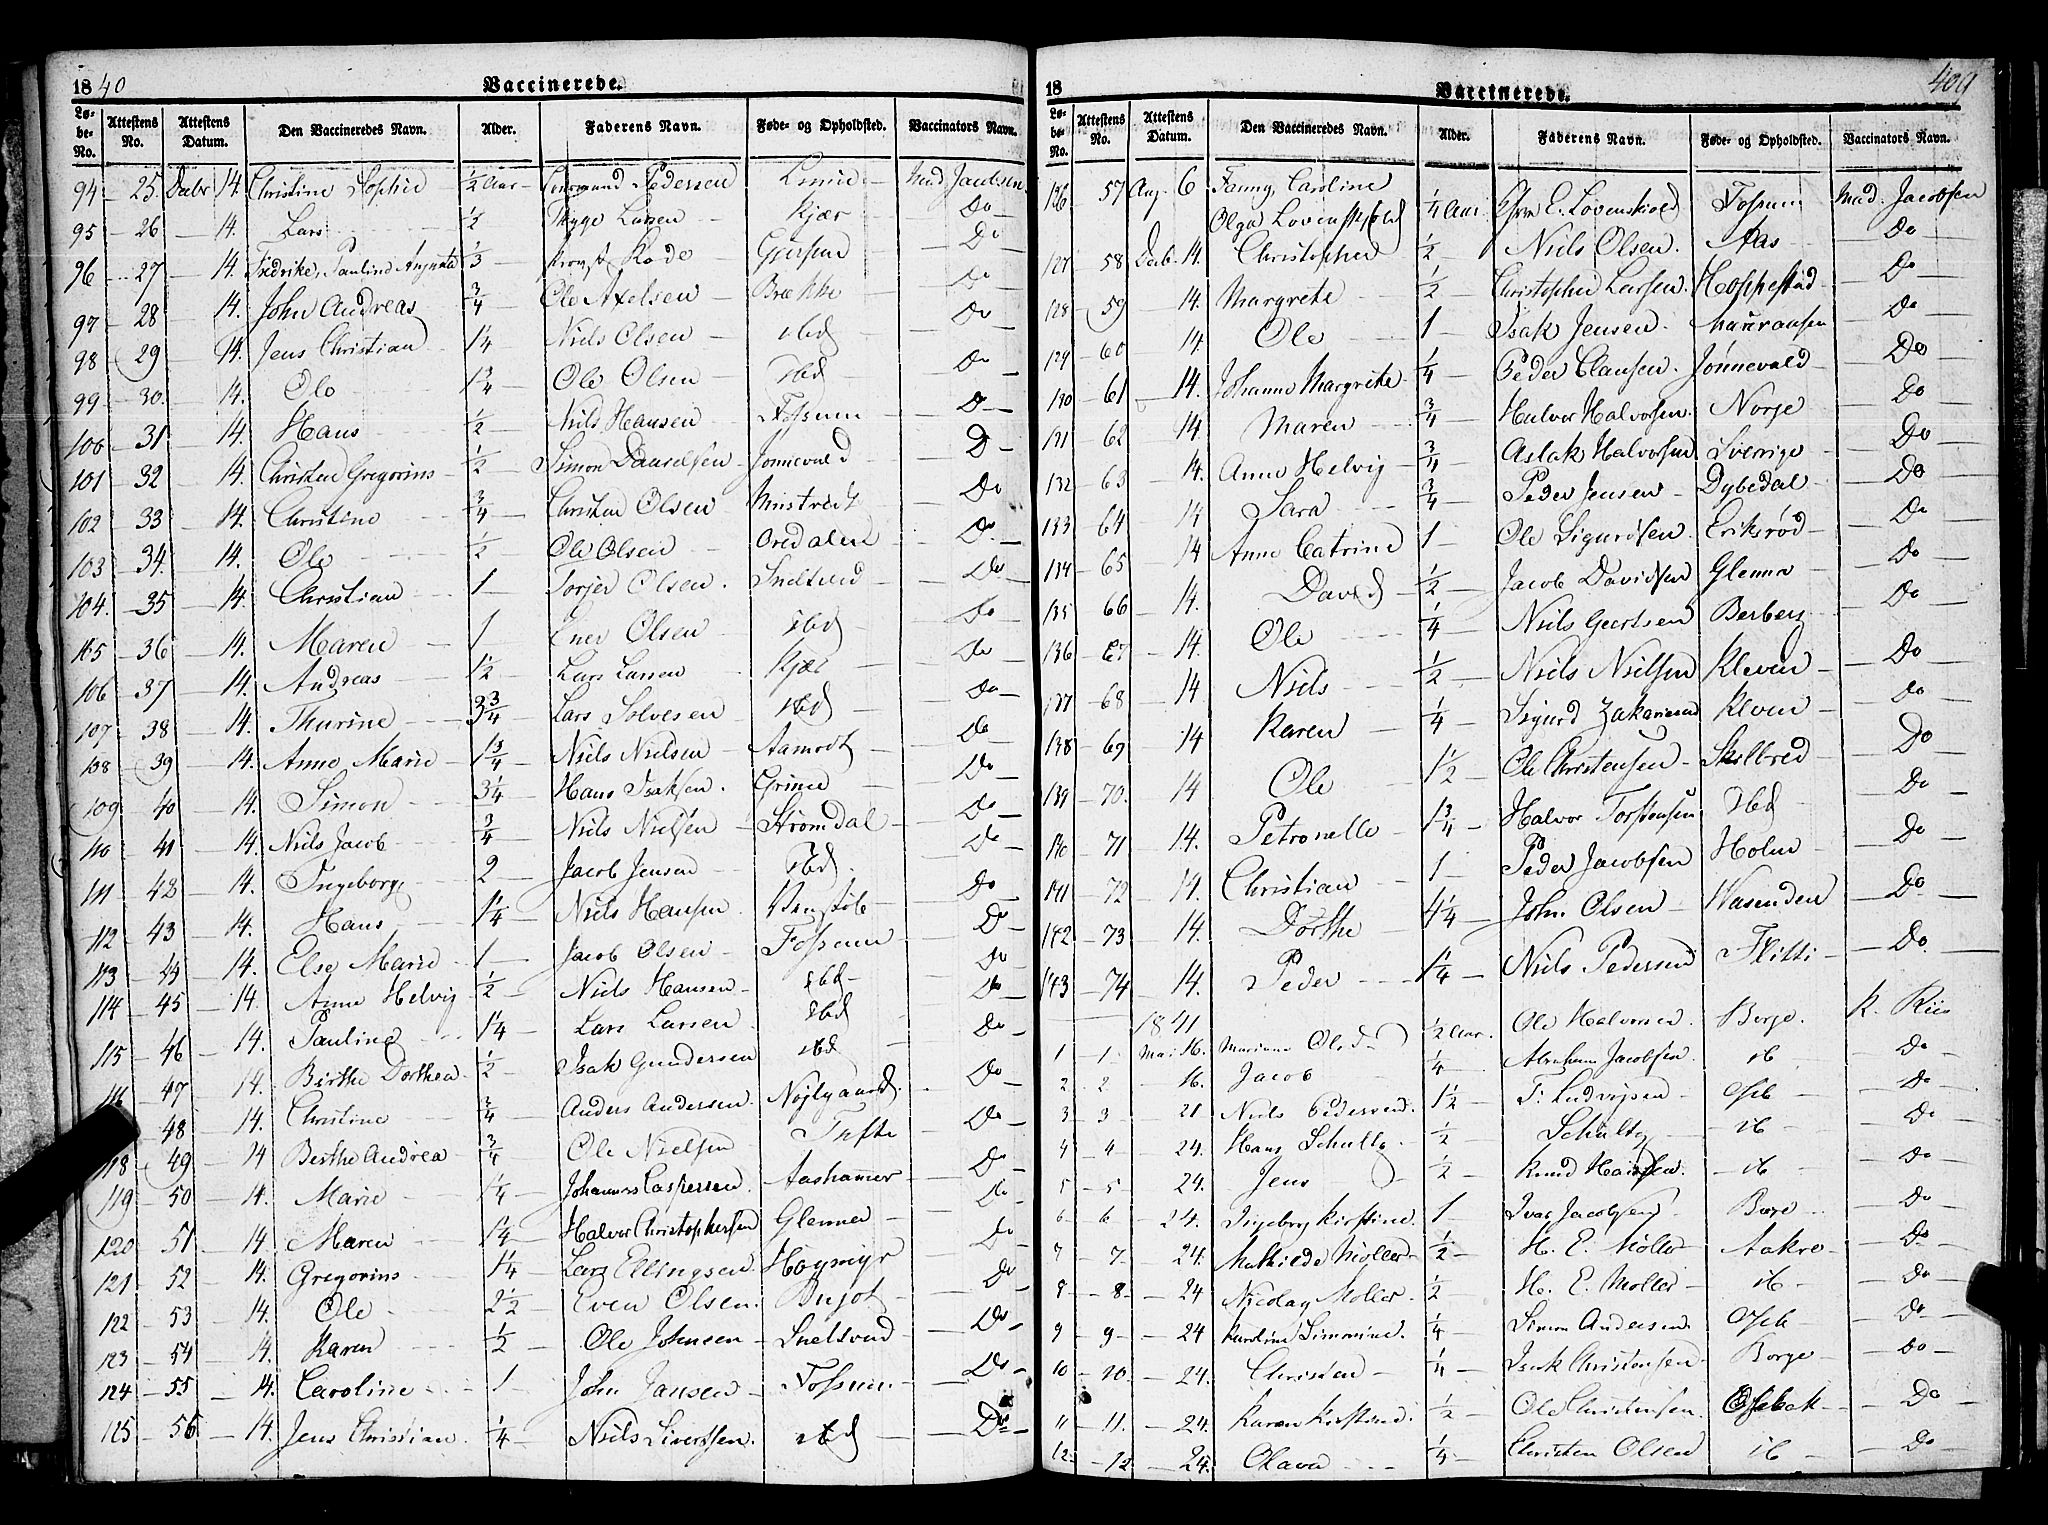 1840 Vaccinerede.
Løbe-No. Attestens No. Attestens Datum. Den Vaccineredes Navn. Alder. Faderens Navn. Føde- og Opholdsted. Vaccinators Navn.
94 25 Decbr 14. Christine Sophie 1/2 Aar Pedersen Mad. Jacobsen
95 26 14. Lars 1/2 Thyge Larsen Kjær Do
96 27 14. Fredrike, Pauline Augusta 1/3 Provst Rode Gjerpen Do
97 28 14. John Andreas 3/4 Ole Axelsen Brække Do
98 29 14. Jens Christian 1 1/4 Niels Olsen ibd Do
99 30. 14. Ole 1 3/4 Ole Olsen ibd Do
100 31 14. Hans 1/2 Nils Hansen Fossum Do
101 32 14. Christen Gregorius 1/2 Simon Danielsen Jønnevald Do
102 33 14. Christine 3/4 Christen Olsen Mustvedt Do
103 34. 14. Ole 1/2 Ole Olsen Oredalen Do
104. 35 14. Christian 1 Torjer Olsen. Sneltved Do
105 36 14. Maren 1 Ener Olsen ibd Do
106 37 14. Andreas 1 1/2 Lars Larsen Kjær Do
107 38 14. Thurine 3 3/4 Lars Solvesen ibd Do
108 39 14. Anne Marie 1 3/4 Niels Nielsen Aamodt Do
109 40 14. Simon 3 1/4 Hans Isaksen. Grinie Do
110 41 14. Niels Jacob 3/4 Niels Nielsen Strømdal Do
111 42 14. Ingeborg 2 Jacob Jensen ibd. Do
112 43 14. Hans 1 1/4 Niels Hansen Venstøb Do
113 44 14. Else Marie 1 Jacob Olsen Fossum Do
114 45 14. Anne Helvig 1/2 Niels Hansen ibd Do
115 46 14. Pauline 1 1/4 Lars Larsen ibd Do
116 47 14. Birthe Dorthea 1/2 Isak Gundersen ibd Do
48 14. Christine 3/4 Anders Andersen. Nøjlgaard. Do
118 49 14 Berthe Andrea 3/4 Ole Nielsen Tufte Do
119 50 14. Marie 1 1/4 Johannes Caspersen. Aashammer Do
120 51 14 Maren 1 1/4 Halvor Christophersen Glenner Do
121 52 14. Gregorius 1 1/4 Lars Ellingsen Høymyr Do
122 53 14. Ole 2 1/2 Even Olsen. Bugot Do
123 54 14. Karen 1/2 Ole Johnsen Sneltved Do
124 55 14. Caroline 1 John Jansen Fossum. Do
125 56 14. Jens Christian 1/4 Niels Sivertsen. ibd Do
18 Vaccinerede. 409
Løbe-No. Attestens No. Attestens Datum. Den Vaccineredes Navn. Alder. Faderens Navn. Føde- og Opholdsted. Vaccinators Navn.
126 57 Aug 6 Fanny, Caroline
Olga Løvenskiold 1/4 Aar E. Løvenskiold Fossum Mad. Jacobsen
127 58 Decb. 14. Christopher 1/2 Niels Olsen. Aas Do
128 59 14. Margrete 1/2 Christopher Larsen. Hoppestad Do
129 60 14. Ole 1 Isak Jensen. Do
130 61 14. Johanne Margrete 1/4 Peder Clausen. Jønnevald Do
131 62 14 Maren 3/4 Halvor Halvorsen. Norge Do
132 63 14. Anne Helvig 3/4 Aslak Halvorsen Sverrige Do
133 64 14 Sara 3/4 Peder Jensen Dybedal Do
134 65 14 Anne Catrine 1 Ole Sigurdsen. Eriksrød Do
135 66 14. David 1/2 Jacob Davidsen Glenna Do
136 67 14. Ole 1/4 Niels Geertsen Berberg Do
137 68 14 Niels 1/2 Niels Nielsen Kleven Do
138 69 14 Karen 1/4 Sigurd Zakariesen Kleven Do
139 70. 14 Ole 1 1/2 Ole Christensen Skilbred Do
140 71 14. Petronelle 1 3/4 Halvor Torstensen ibd Do
141 72 14. Christian 1 Peder Jacobsen Holm Do
142 73 14. Dorthe 4 1/4 John Olsen Wasenden Do
143 74 14. Peder 1 1/4 Niels Pedersen Flitti Do
1841
1 1 Mai 16. Mariane Olsd 1/2 Aar. Ole Halvorsen. Borge. K. Riis
2 2 16. Jacob 1/4 Abraham Jacobsen. ib Do
3 3 21 Niels Pedersen. 1 1/2 T. Ludvigsen Do
4 4 24. Hans Schultz. 1/2 Schultz ib Do
5 5 24. Jens 1/2 Knud Hansen. ib Do
6 6 24. Ingeborg Kirstine. 1 Ivar Jacobsen Do
7 7 24. Mathilde Møller 1/2 H. E. Møller Aakre Do
8 8 24 Nicolay Møller. 1/2 H. E. Møller ib Do
9 9 24 Karoline Simmine. 1/4 Simon Andersen. Do
10 10. 24. Christen 1/4 Isak Christensen. Borge Do
11 11. 24. Karen Kirstine. 1/2 Ole Christensen. Do
12. 12 24. Olava 1/4 Christen Olsen ib Do